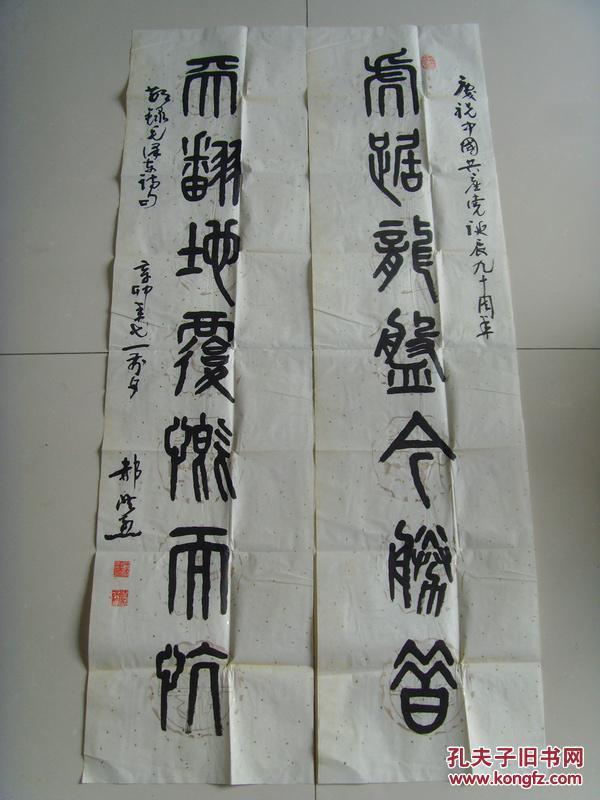 慶祝中國共產党誕辰九十周年
虎踞龍盤今勝昔
天翻地覆慨而忼
敬録毛澤东詩句
辛卯年七一前夕
郝
孔夫子旧书网
www.kongfz.com